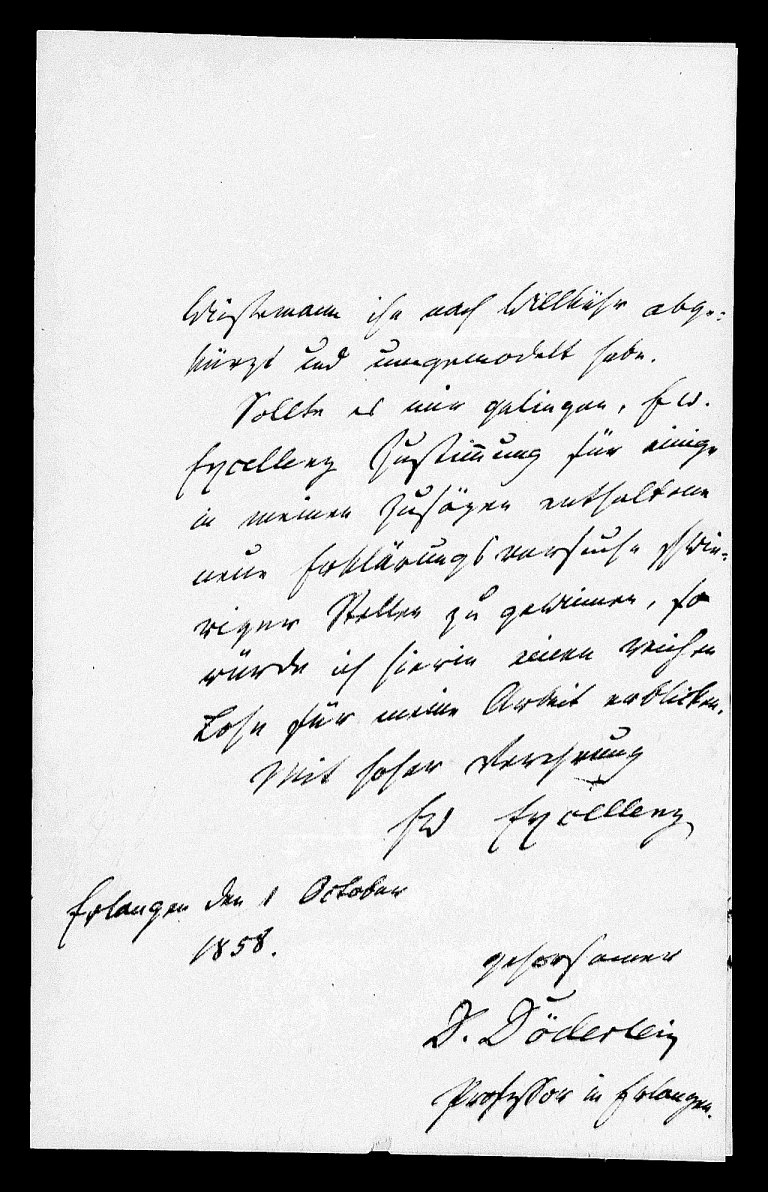 Wüstemann ihn nach Willkühr abge-
kürzt und umgemodelt habe.
Sollte es mir gelingen, Ew.
Excellenz Zustimmung für einige
in meinen Zusätzen enthaltene
neue Erklärungsversuche schwie-
riger Stellen zu gewinnen, so
würde ich hierin einen reichen
Lohn für meine Arbeit erblicken.
Mit hoher Verehrung
Ew Excellenz
Erlangen den 1 October
1858.
gehorsamer
D. Döderlein
Professor in Erlangen.